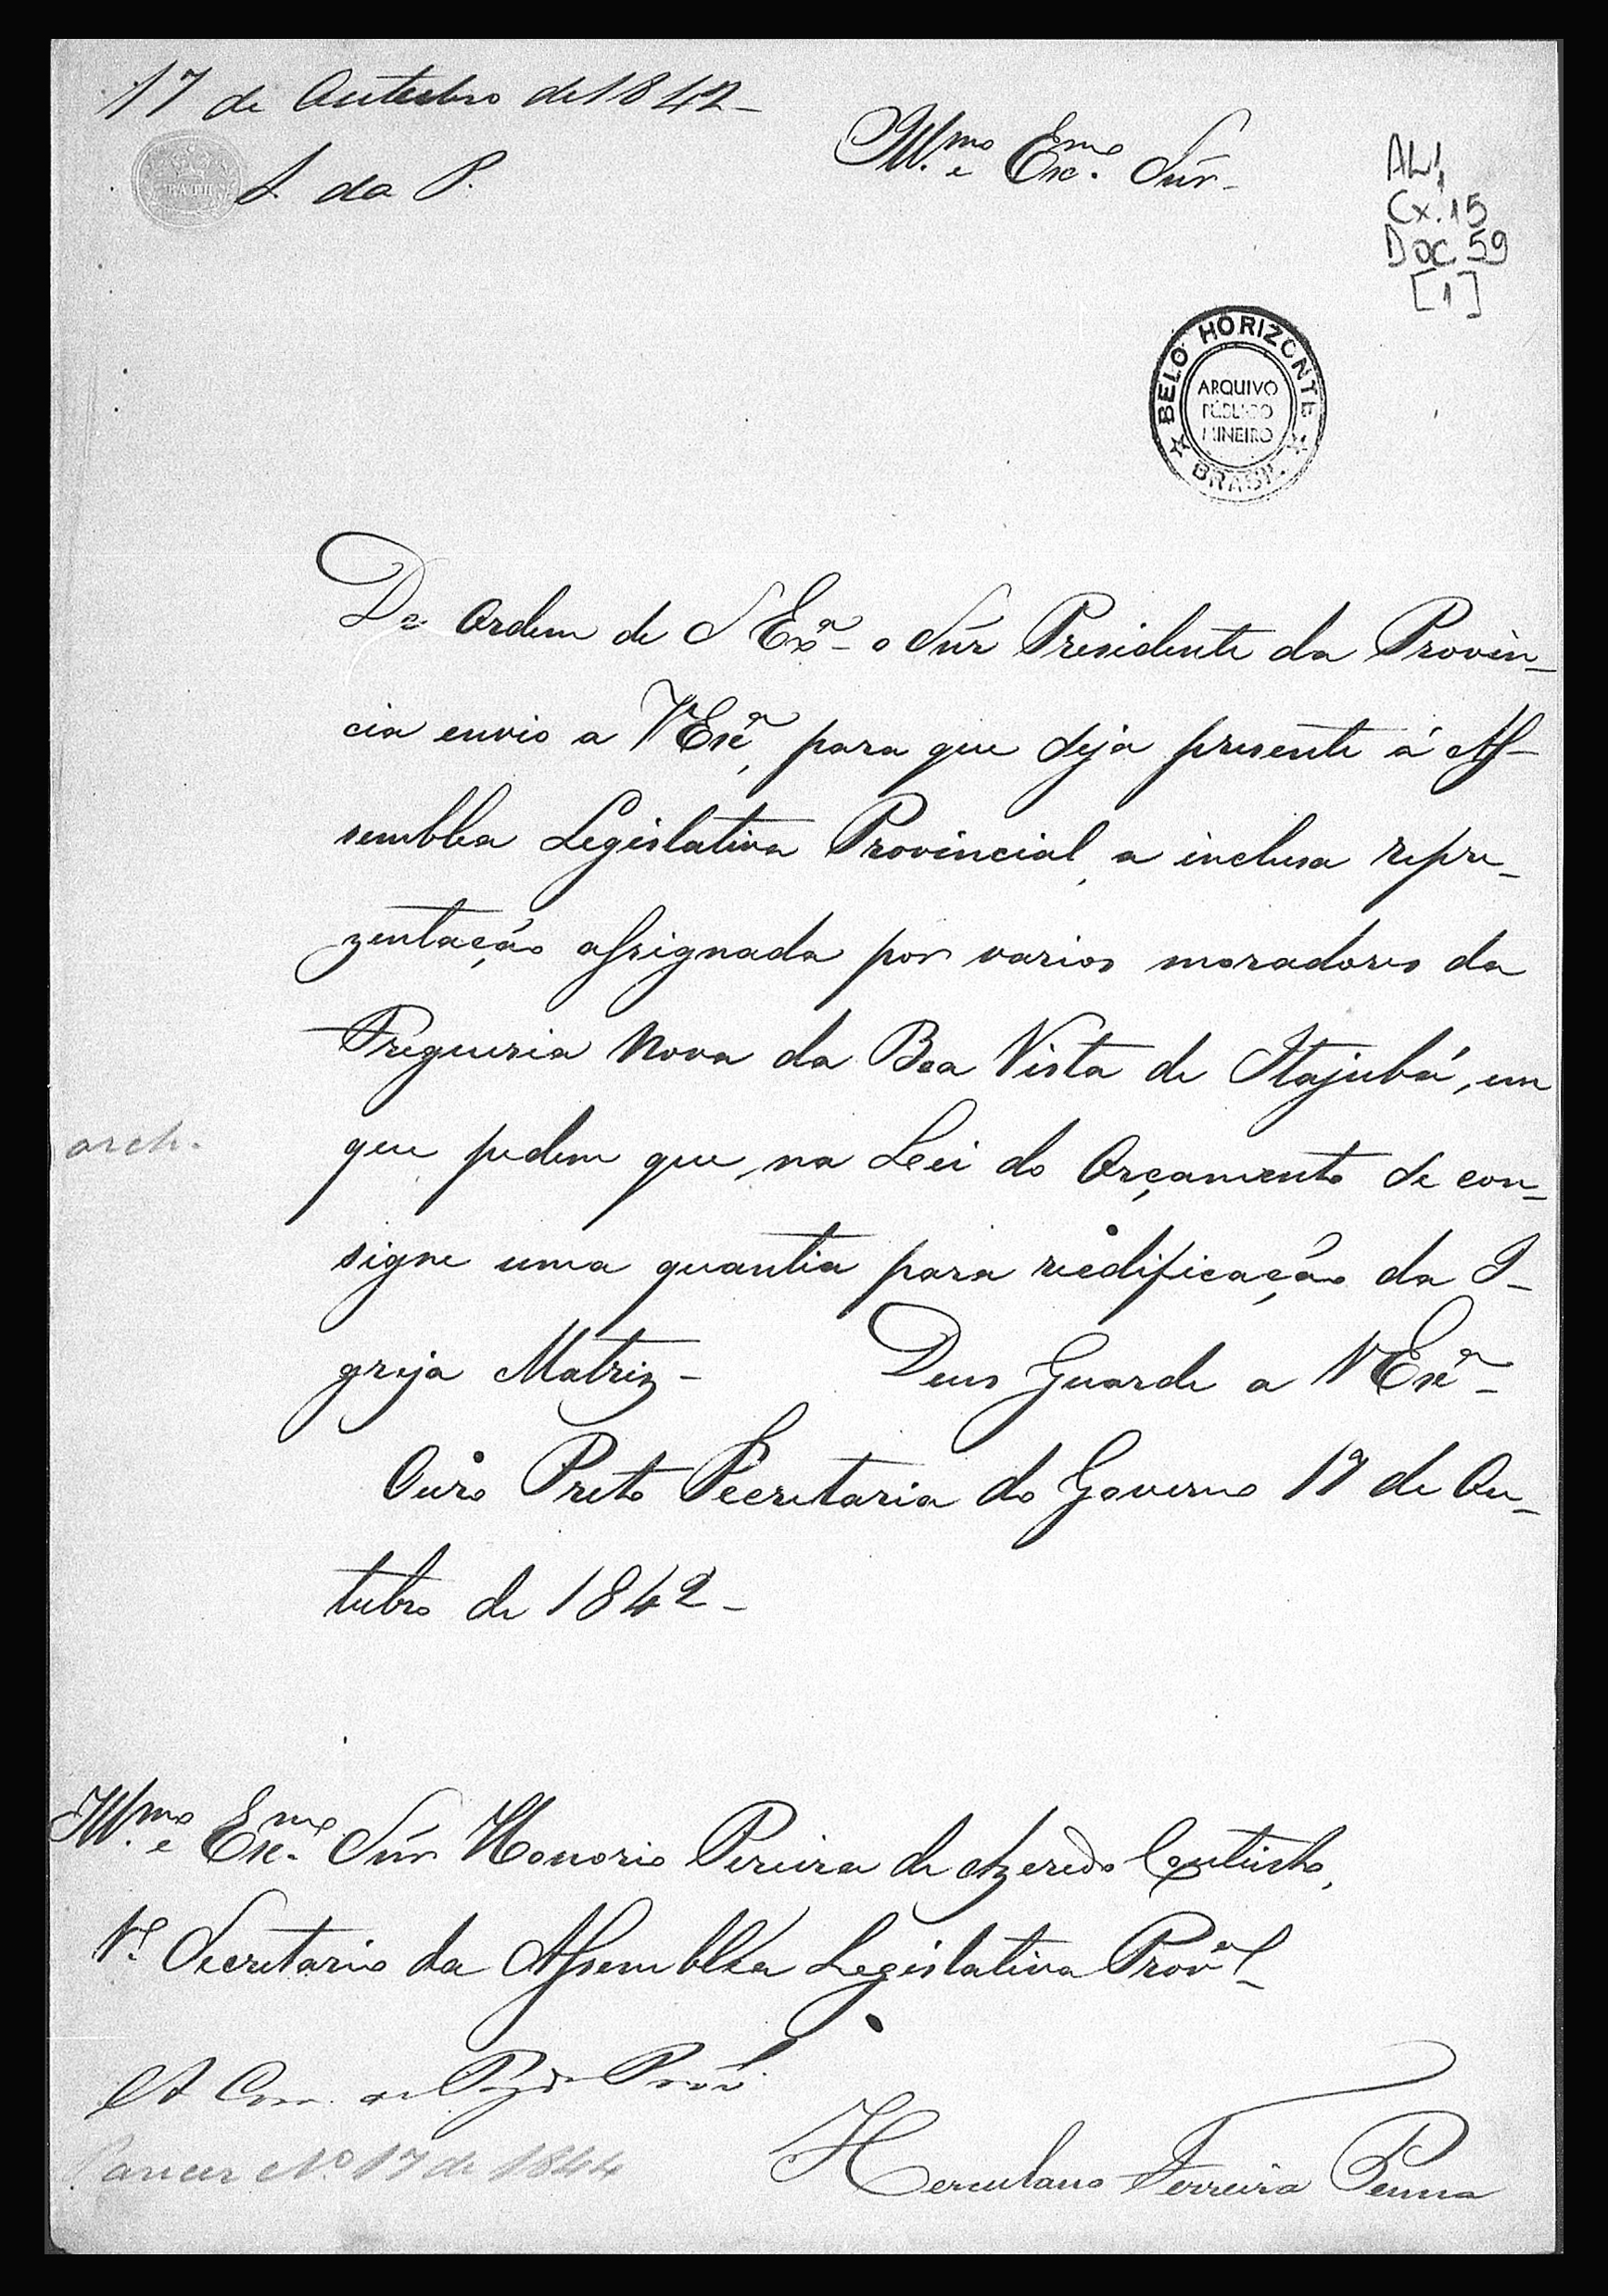 17 de Outubro de 1842_
S. da P.
Illmo. e Exmo. Snr.
AL 1
Cx. 15
Doc 59
[1]
BELO HORIZONTE
ARQUIVO
PÚBLICO
MINEIRO
BRASIL
BATH
De Ordem de S Exa_ o Snr Presidente da Provin_
cia envio a V Exca, para que seja presente á As-
semblea Legislativa Provincial, a inclusa repre_
zentação assignada por varios moradores da
Freguesia Nova da Boa Vista de Itajubá, em
arch.
que pedem que na Lei do Orçamento se con_
signe uma quantia para reedificação da I_
greja Matriz_ Deus Guarde a V Exca_
Ouro Preto Secretaria do Governo 17 de Ou_
tubro de 1842_
Illmo. e Excmo. Snr Honorio Pereira de Azeredo Coutinho,
1º Secretario da Assemblea Legislativa Proval_
A Com. de Prov
Parecer Nº 17 de 1844
Herculano Ferreira Penna